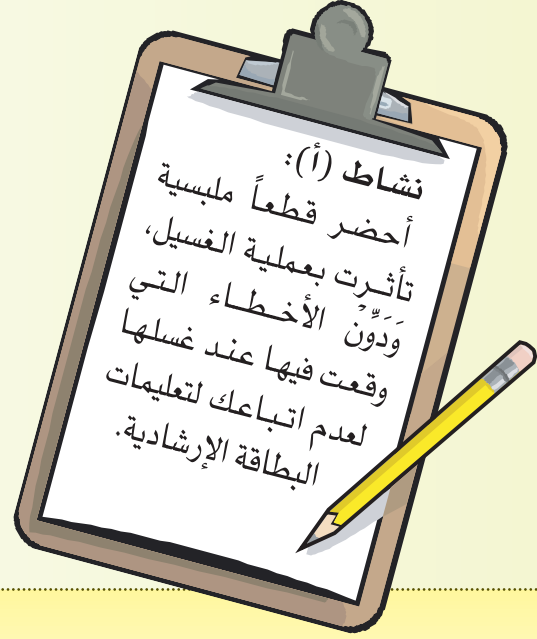 نشاط (أ):
أحضر قطعاً ملبسية
تأثرت بعملية الغسيل،
وَدَوِّنْ الأخطاء التي
وقعت فيها عند غسلها
لعدم اتباعك لتعليمات
البطاقة الإرشادية.